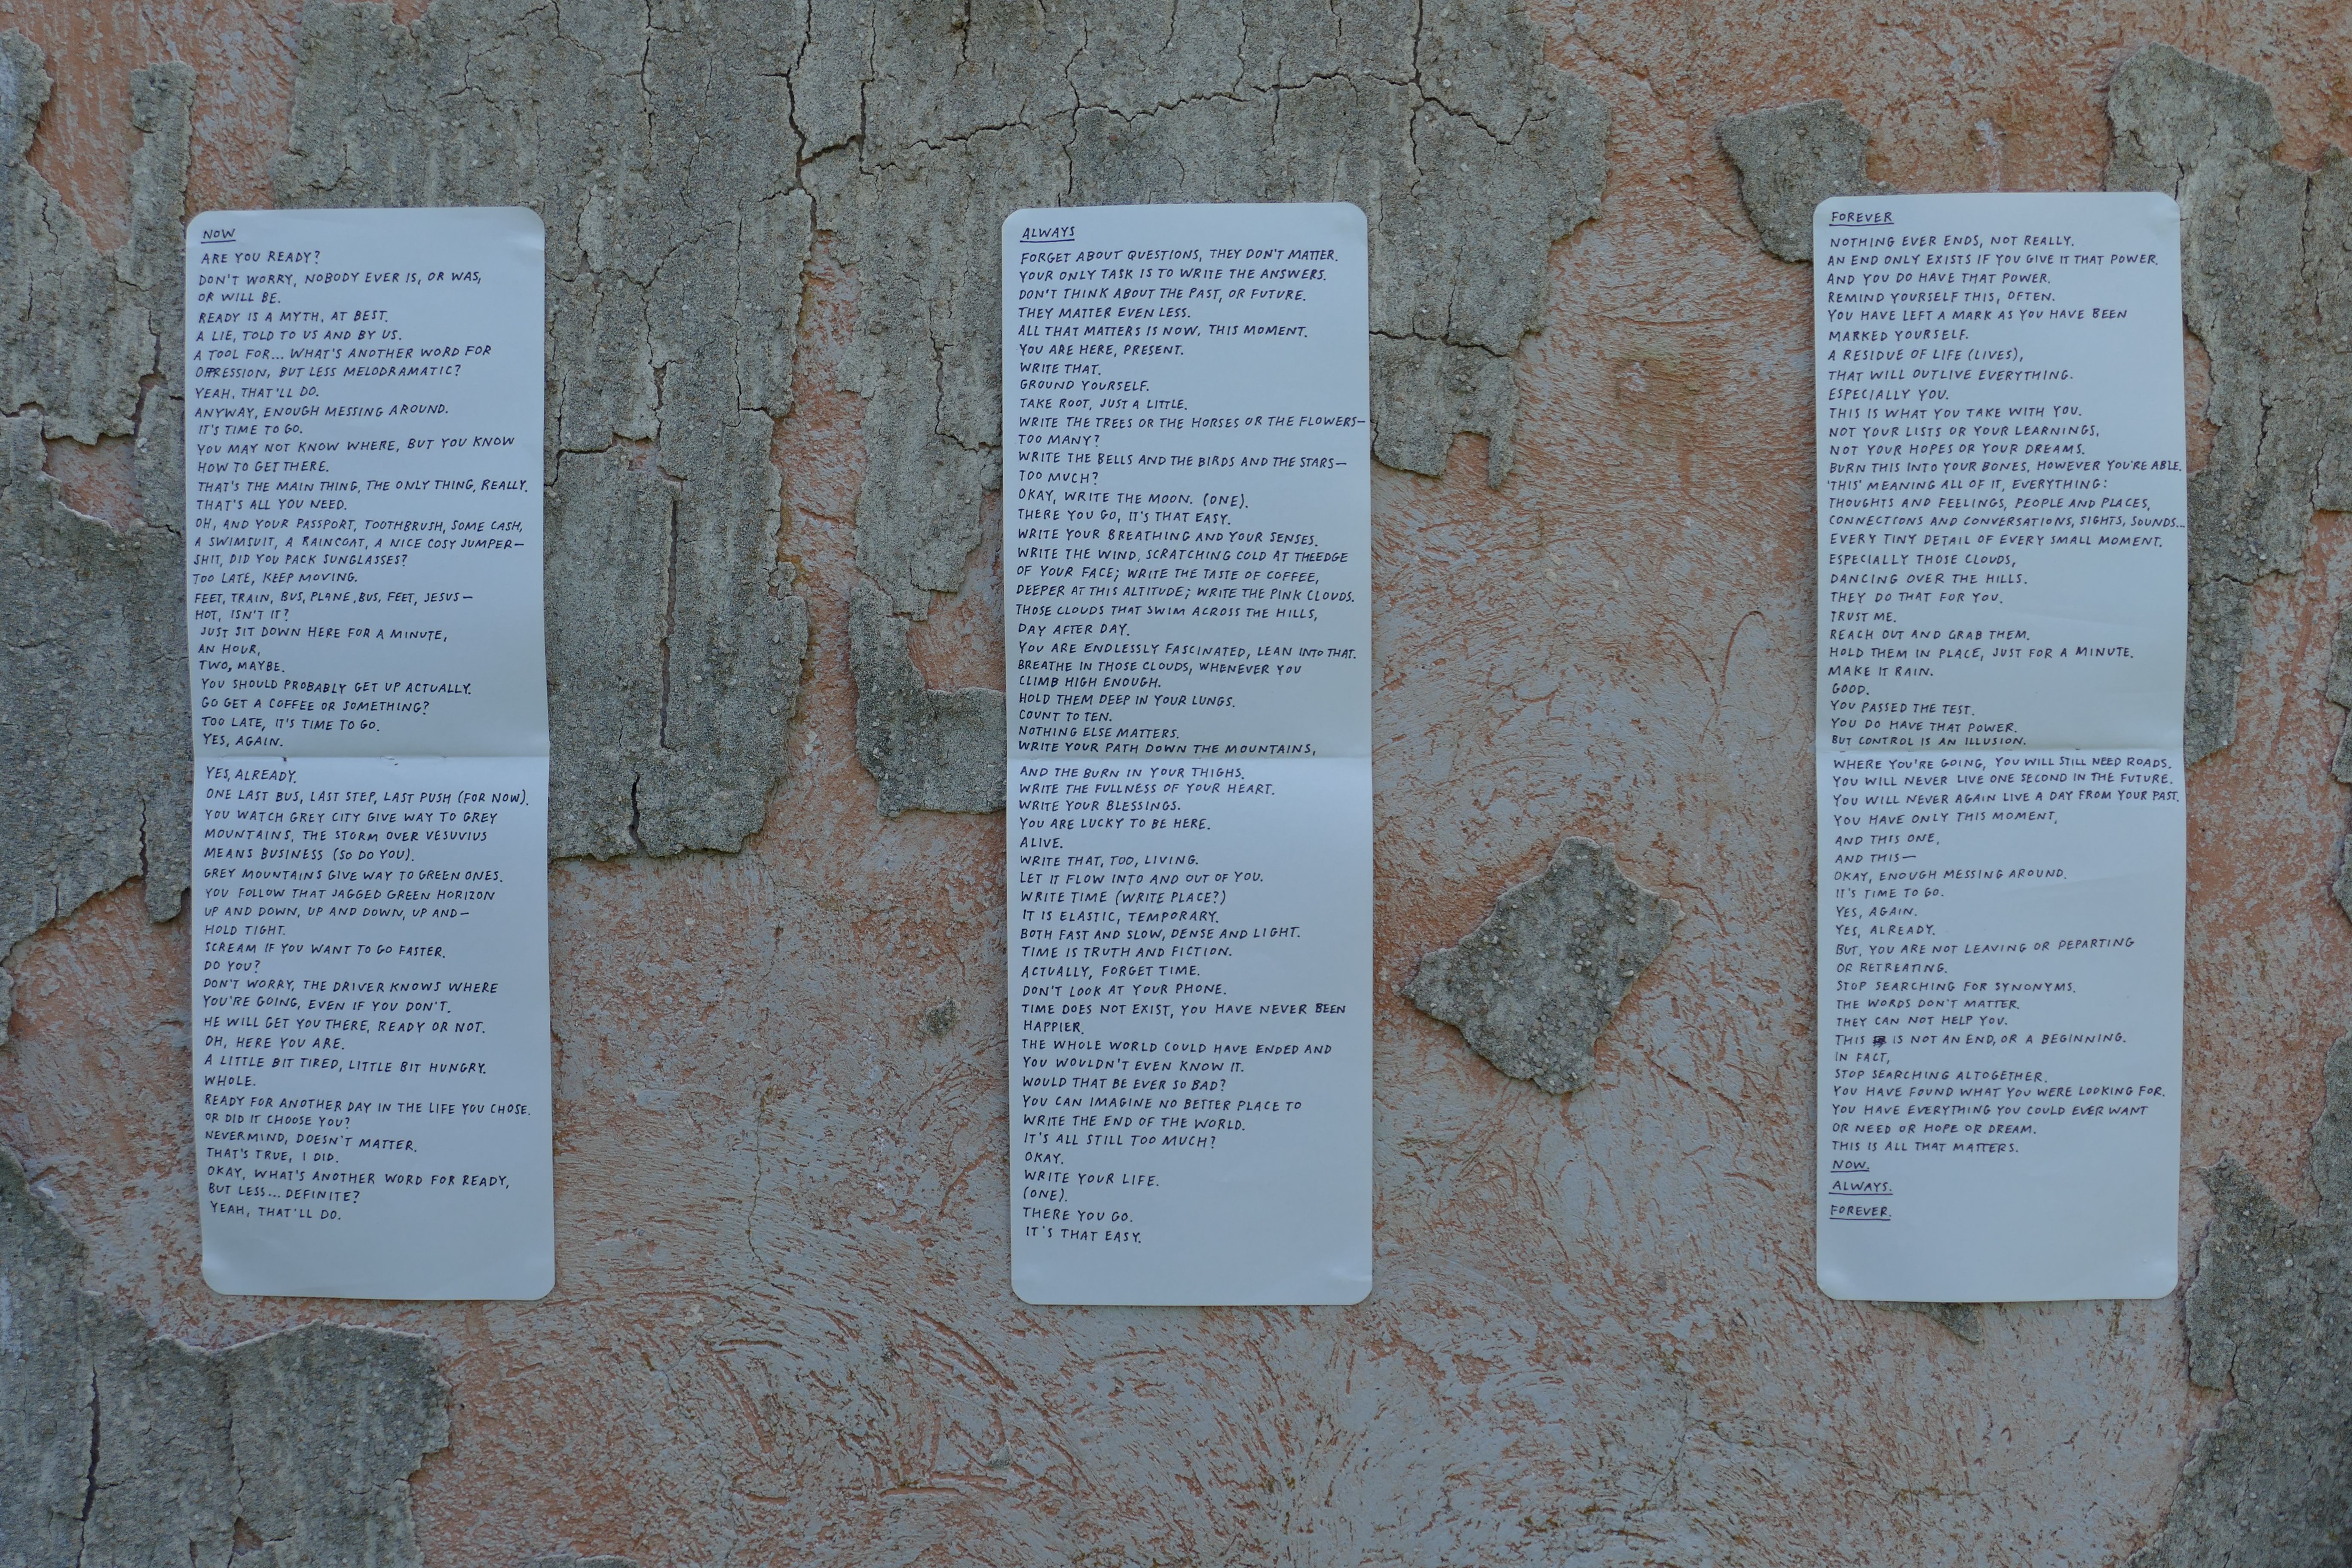 NOW
ARE YOU READY?
DON'T WORRY, NOBODY EVER IS, OR WAS,
OR WILL BE.
READY IS A MYTH, AT BEST.
A LIE, TOLD TO US AND BY US.
A TOOL FOR... WHAT'S ANOTHER WORD FOR
OPPRESSION, BUT LESS MELODRAMATIC?
YEAH, THAT'LL DO.
ANYWAY, ENOUGH MESSING AROUND.
IT'S TIME TO GO.
YOU MAY NOT KNOW WHERE, BUT YOU KNOW
HOW TO GET THERE.
THAT'S THE MAIN THING, THE ONLY THING, REALLY.
THAT'S ALL YOU NEED.
OH, AND YOUR PASSPORT, TOOTHBRUSH, SOME CASH,
A SWIMSUIT, A RAINCOAT, A NICE COSY JUMPER—
SHIT, DID YOU PACK SUNGLASSES?
TOO LATE, KEEP MOVING.
FEET, TRAIN, BUS, PLANE, BUS, FEET, JESUS—
HOT, ISN'T IT?
JUST SIT DOWN HERE FOR A MINUTE,
AN HOUR,
TWO, MAYBE.
YOU SHOULD PROBABLY GET UP ACTUALLY.
GO GET A COFFEE OR SOMETHING?
TOO LATE, IT'S TIME TO GO.
YES, AGAIN.
YES, ALREADY.
ONE LAST BUS, LAST STEP, LAST PUSH (FOR NOW).
YOU WATCH GREY CITY GIVE WAY TO GREY
MOUNTAINS, THE STORM OVER VESUVIUS
MEANS BUSINESS (SO DO YOU).
GREY MOUNTAINS GIVE WAY TO GREEN ONES.
YOU FOLLOW THAT JAGGED GREEN HORIZON
UP AND DOWN, UP AND DOWN, UP AND—
HOLD TIGHT.
SCREAM IF YOU WANT TO GO FASTER.
DO YOU?
DON'T WORRY, THE DRIVER KNOWS WHERE
YOU'RE GOING, EVEN IF YOU DON'T.
HE WILL GET YOU THERE, READY OR NOT.
OH, HERE YOU ARE.
A LITTLE BIT TIRED, LITTLE BIT HUNGRY.
WHOLE.
READY FOR ANOTHER DAY IN THE LIFE YOU CHOSE.
OR DID IT CHOOSE YOU?
NEVERMIND, DOESN'T MATTER.
THAT'S TRUE, I DID.
OKAY, WHAT'S ANOTHER WORD FOR READY,
BUT LESS... DEFINITE?
YEAH, THAT'LL DO.
ALWAYS
FORGET ABOUT QUESTIONS, THEY DON'T MATTER.
YOUR ONLY TASK IS TO WRITE THE ANSWERS.
DON'T THINK ABOUT THE PAST, OR FUTURE.
THEY MATTER EVEN LESS.
ALL THAT MATTERS IS NOW, THIS MOMENT.
YOU ARE HERE, PRESENT.
WRITE THAT.
GROUND YOURSELF.
TAKE ROOT, JUST A LITTLE.
WRITE THE TREES OR THE HORSES OR THE FLOWERS—
TOO MANY?
WRITE THE BELLS AND THE BIRDS AND THE STARS—
TOO MUCH?
OKAY, WRITE THE MOON. (ONE).
THERE YOU GO, IT'S THAT EASY.
WRITE YOUR BREATHING AND YOUR SENSES.
WRITE THE WIND, SCRATCHING COLD AT THE EDGE
OF YOUR FACE; WRITE THE TASTE OF COFFEE,
DEEPER AT THIS ALTITUDE; WRITE THE PINK CLOUDS.
THOSE CLOUDS THAT SWIM ACROSS THE HILLS,
DAY AFTER DAY.
YOU ARE ENDLESSLY FASCINATED, LEAN INTO THAT.
BREATHE IN THOSE CLOUDS, WHENEVER YOU
CLIMB HIGH ENOUGH.
HOLD THEM DEEP IN YOUR LUNGS.
COUNT TO TEN.
NOTHING ELSE MATTERS.
WRITE YOUR PATH DOWN THE MOUNTAINS,
AND THE BURN IN YOUR THIGHS.
WRITE THE FULLNESS OF YOUR HEART.
WRITE YOUR BLESSINGS.
YOU ARE LUCKY TO BE HERE.
ALIVE.
WRITE THAT, TOO, LIVING.
LET IT FLOW INTO AND OUT OF YOU.
WRITE TIME (WRITE PLACE?)
IT IS ELASTIC, TEMPORARY.
BOTH FAST AND SLOW, DENSE AND LIGHT.
TIME IS TRUTH AND FICTION.
ACTUALLY, FORGET TIME.
DON'T LOOK AT YOUR PHONE.
TIME DOES NOT EXIST, YOU HAVE NEVER BEEN
HAPPIER.
THE WHOLE WORLD COULD HAVE ENDED AND
YOU WOULDN'T EVEN KNOW IT.
WOULD THAT BE EVER SO BAD?
YOU CAN IMAGINE NO BETTER PLACE TO
WRITE THE END OF THE WORLD.
IT'S ALL STILL TOO MUCH?
OKAY.
WRITE YOUR LIFE.
(ONE).
THERE YOU GO.
IT'S THAT EASY.
FOREVER
NOTHING EVER ENDS, NOT REALLY.
AN END ONLY EXISTS IF YOU GIVE IT THAT POWER.
AND YOU DO HAVE THAT POWER.
REMIND YOURSELF THIS, OFTEN.
YOU HAVE LEFT A MARK AS YOU HAVE BEEN
MARKED YOURSELF.
A RESIDUE OF LIFE (LIVES),
THAT WILL OUTLIVE EVERYTHING.
ESPECIALLY YOU.
THIS IS WHAT YOU TAKE WITH YOU.
NOT YOUR LISTS OR YOUR LEARNINGS,
NOT YOUR HOPES OR YOUR DREAMS.
BURN THIS INTO YOUR BONES, HOWEVER YOU'RE ABLE.
'THIS' MEANING ALL OF IT, EVERYTHING:
THOUGHTS AND FEELINGS, PEOPLE AND PLACES,
CONNECTIONS AND CONVERSATIONS, SIGHTS, SOUNDS...
EVERY TINY DETAIL OF EVERY SMALL MOMENT.
ESPECIALLY THOSE CLOUDS,
DANCING OVER THE HILLS.
THEY DO THAT FOR YOU.
TRUST ME.
REACH OUT AND GRAB THEM.
HOLD THEM IN PLACE, JUST FOR A MINUTE.
MAKE IT RAIN.
GOOD.
YOU PASSED THE TEST.
YOU DO HAVE THAT POWER.
BUT CONTROL IS AN ILLUSION.
WHERE YOU'RE GOING, YOU WILL STILL NEED ROADS.
YOU WILL NEVER LIVE ONE SECOND IN THE FUTURE.
YOU WILL NEVER AGAIN LIVE A DAY FROM YOUR PAST.
YOU HAVE ONLY THIS MOMENT,
AND THIS ONE,
AND THIS—
OKAY, ENOUGH MESSING AROUND.
IT'S TIME TO GO.
YES, AGAIN.
YES, ALREADY.
BUT, YOU ARE NOT LEAVING OR DEPARTING
OR RETREATING.
STOP SEARCHING FOR SYNONYMS.
THE WORDS DON'T MATTER.
THEY CAN NOT HELP YOU.
THIS IS NOT AN END, OR A BEGINNING.
IN FACT,
STOP SEARCHING ALTOGETHER.
YOU HAVE FOUND WHAT YOU WERE LOOKING FOR.
YOU HAVE EVERYTHING YOU COULD EVER WANT
OR NEED OR HOPE OR DREAM.
THIS IS ALL THAT MATTERS.
NOW.
ALWAYS.
FOREVER.